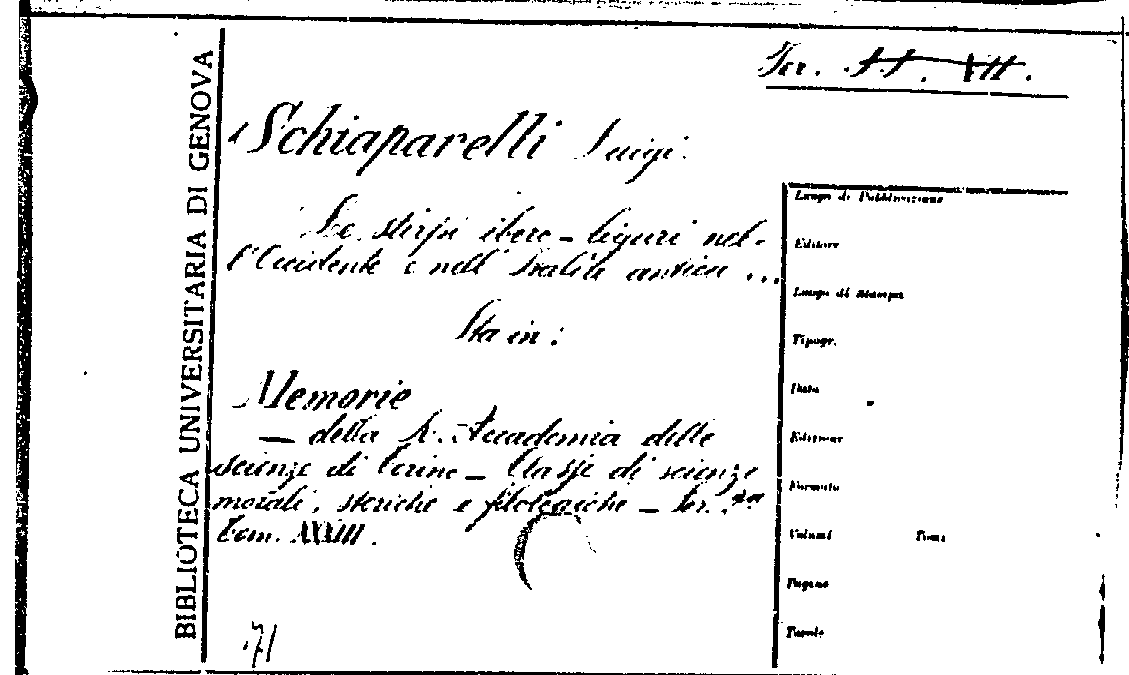 BIBLIOTECA UNIVERSITARIA DI GENOVA
Ser.
Schiaparelli Luigi.
Le stirpi ibero-liguri nel-
l'Occidente e nell'Italia antica ...
Sta in:
Memorie
— della R. Accademia delle
scienze di Torino — Classe di scienze
morali, storiche e filologiche — Ser.
Tom. XXXIII.
71
Luogo di Pubblicazione
Editore
Luogo di Stampa
Tipogr.
Data
Edizione
Formato
Volumi Tomi
Pagine
Tavole